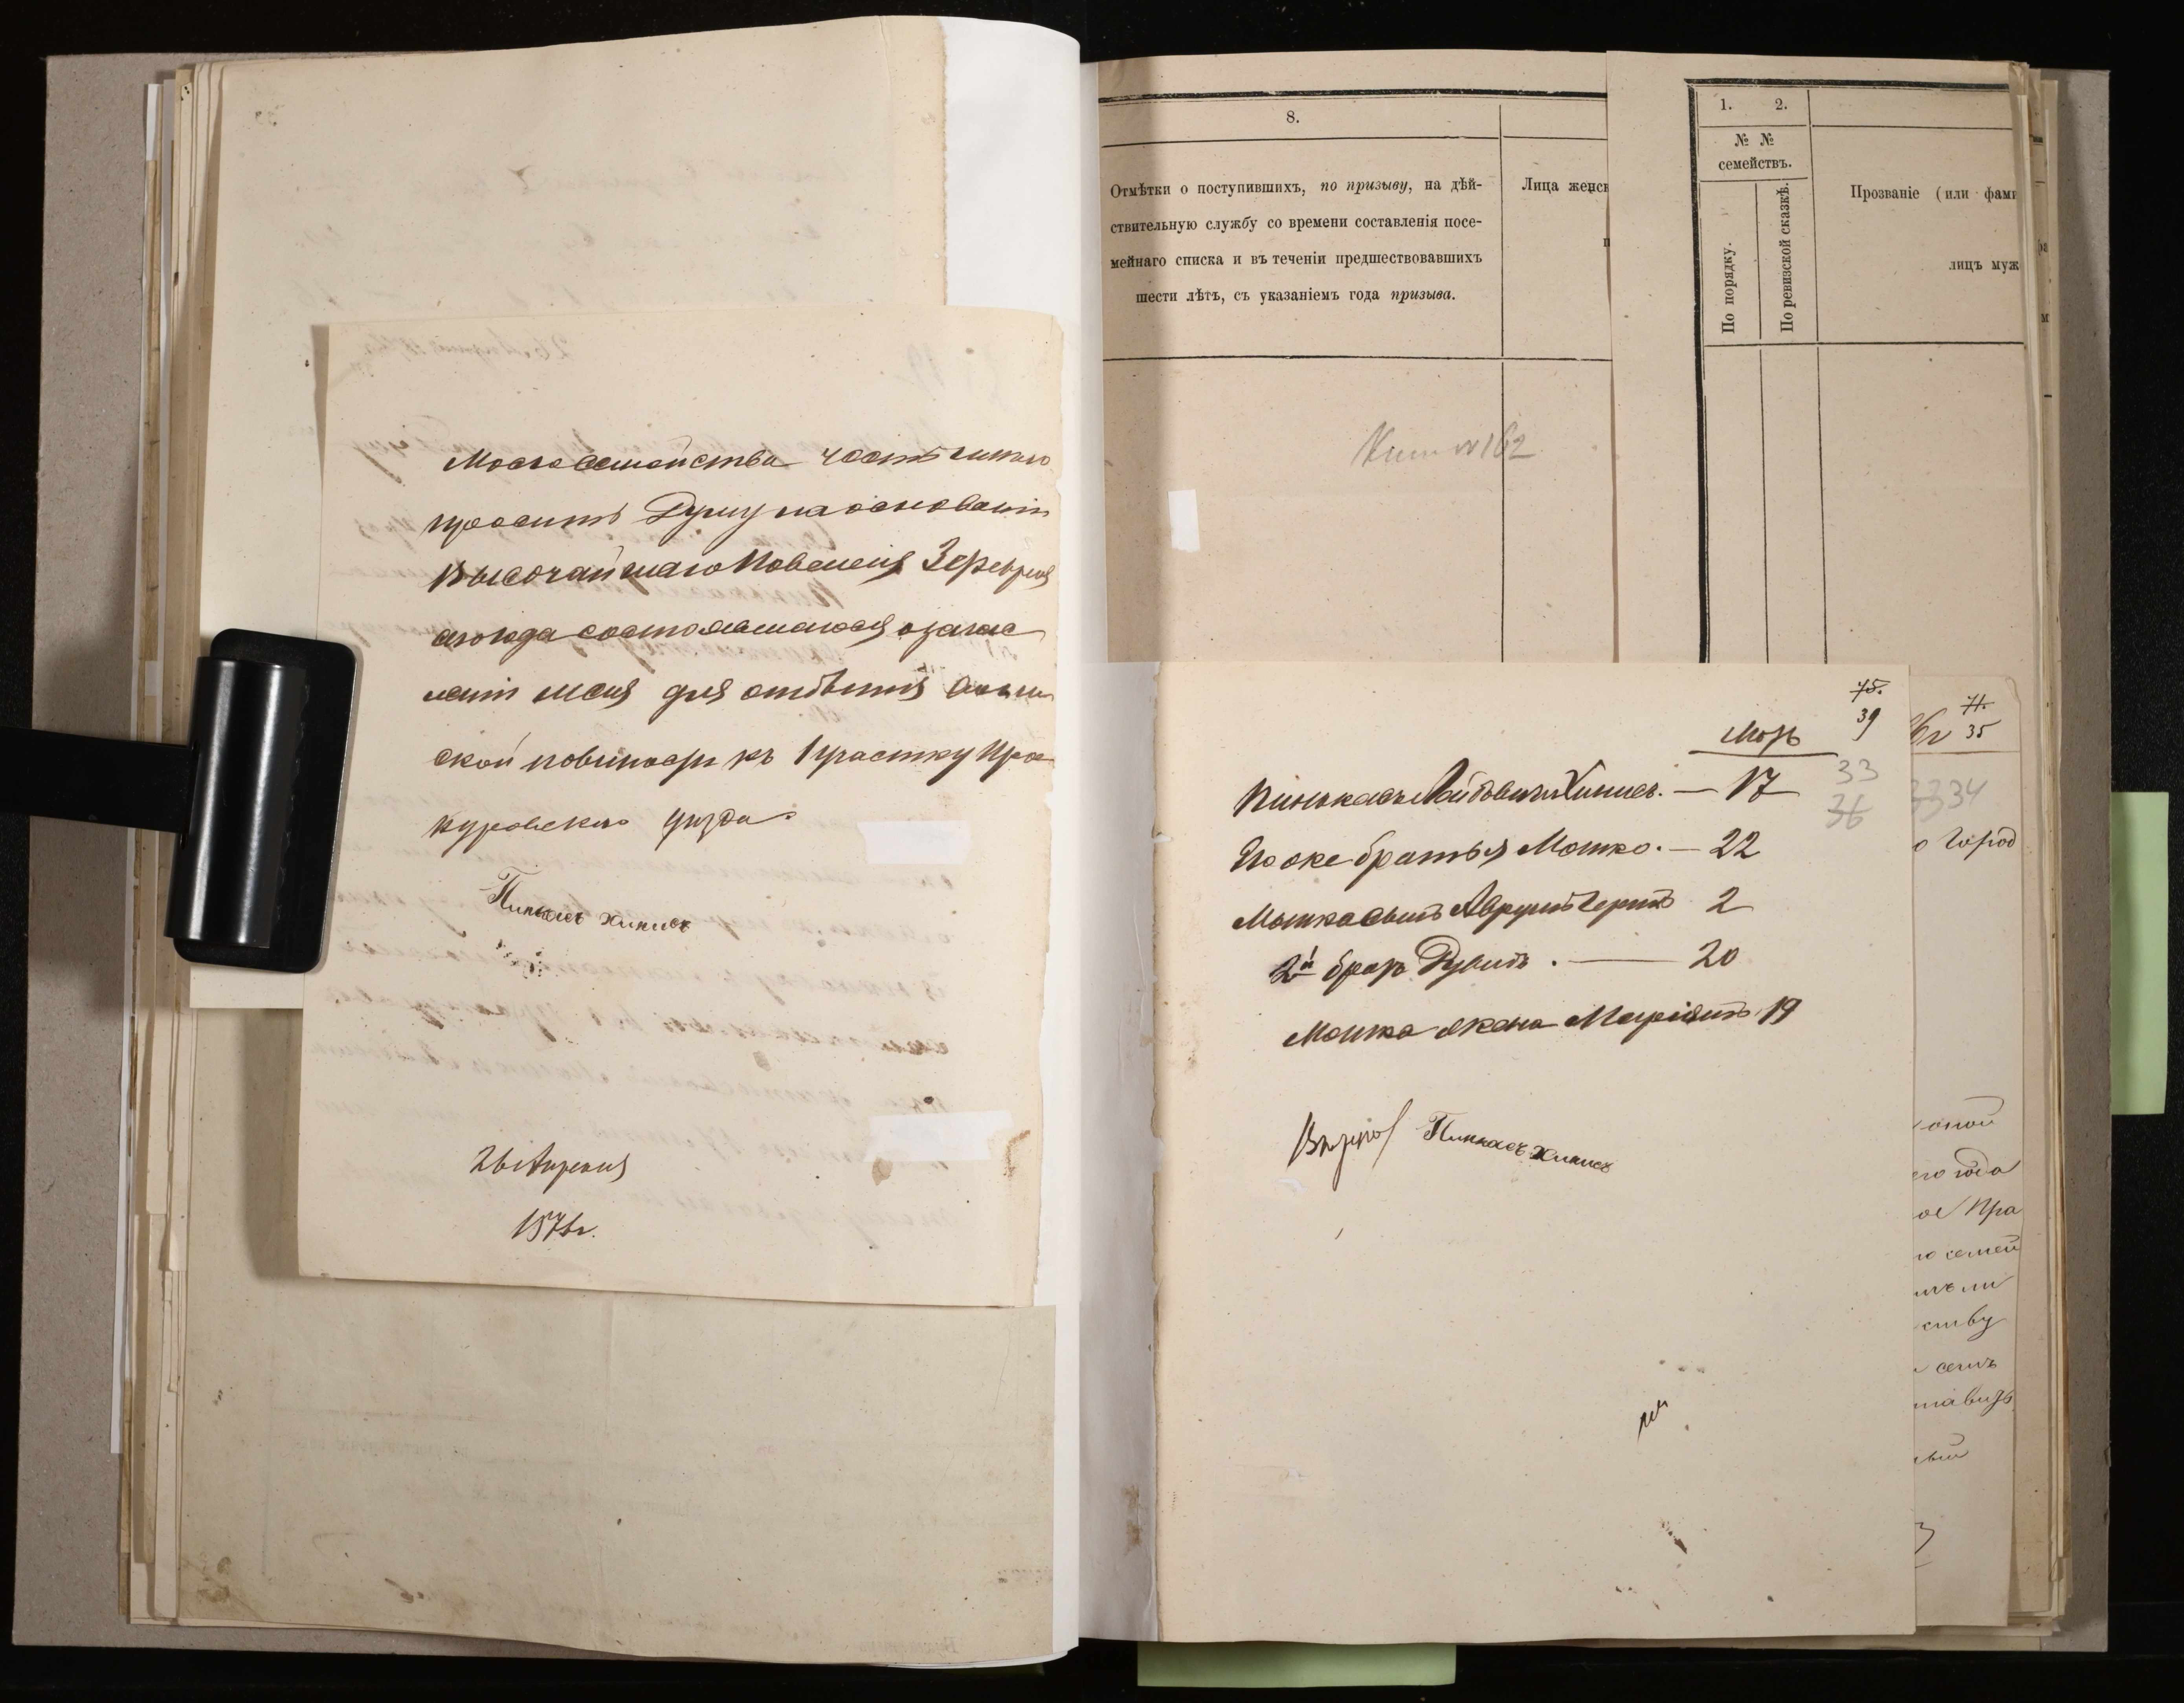 Моего семейства честь имею
просить Думу на основаніи
Высочайшаго Повеленія 3 февраля
сего года состоявшагося о зачис
леніи меня для отбытія воин
ской повиности къ 1 участку Про
куровскаго уезда.
Пинкасъ Хинисъ
26 Апреля
1876 г.
8.
Отмѣтки о поступившихъ, по призыву, на дѣй-
ствительную службу со времени составленія посе-
мейнаго списка и въ теченіи предшествовавшихъ
шести лѣтъ, съ указаніемъ года призыва.
Лица женск
№ 162
1. 2.
№ №
семействъ.
По порядку.
По ревизской сказкѣ.
Прозваніе (или фами
лицъ муж
75.
39
33
36
Летъ
Пинькасъ Хинисъ. — 17
Его же братья Мошко. — 22
Мошка сынъ Аврумъ Герш 2
2й братъ Дувидъ. — 20
Мошка жена Маріамъ 19
Пинкасъ Хинисъ
71.
6 г 35
33 34
о Город
его года
ое Пра
го семей
ству
тавить